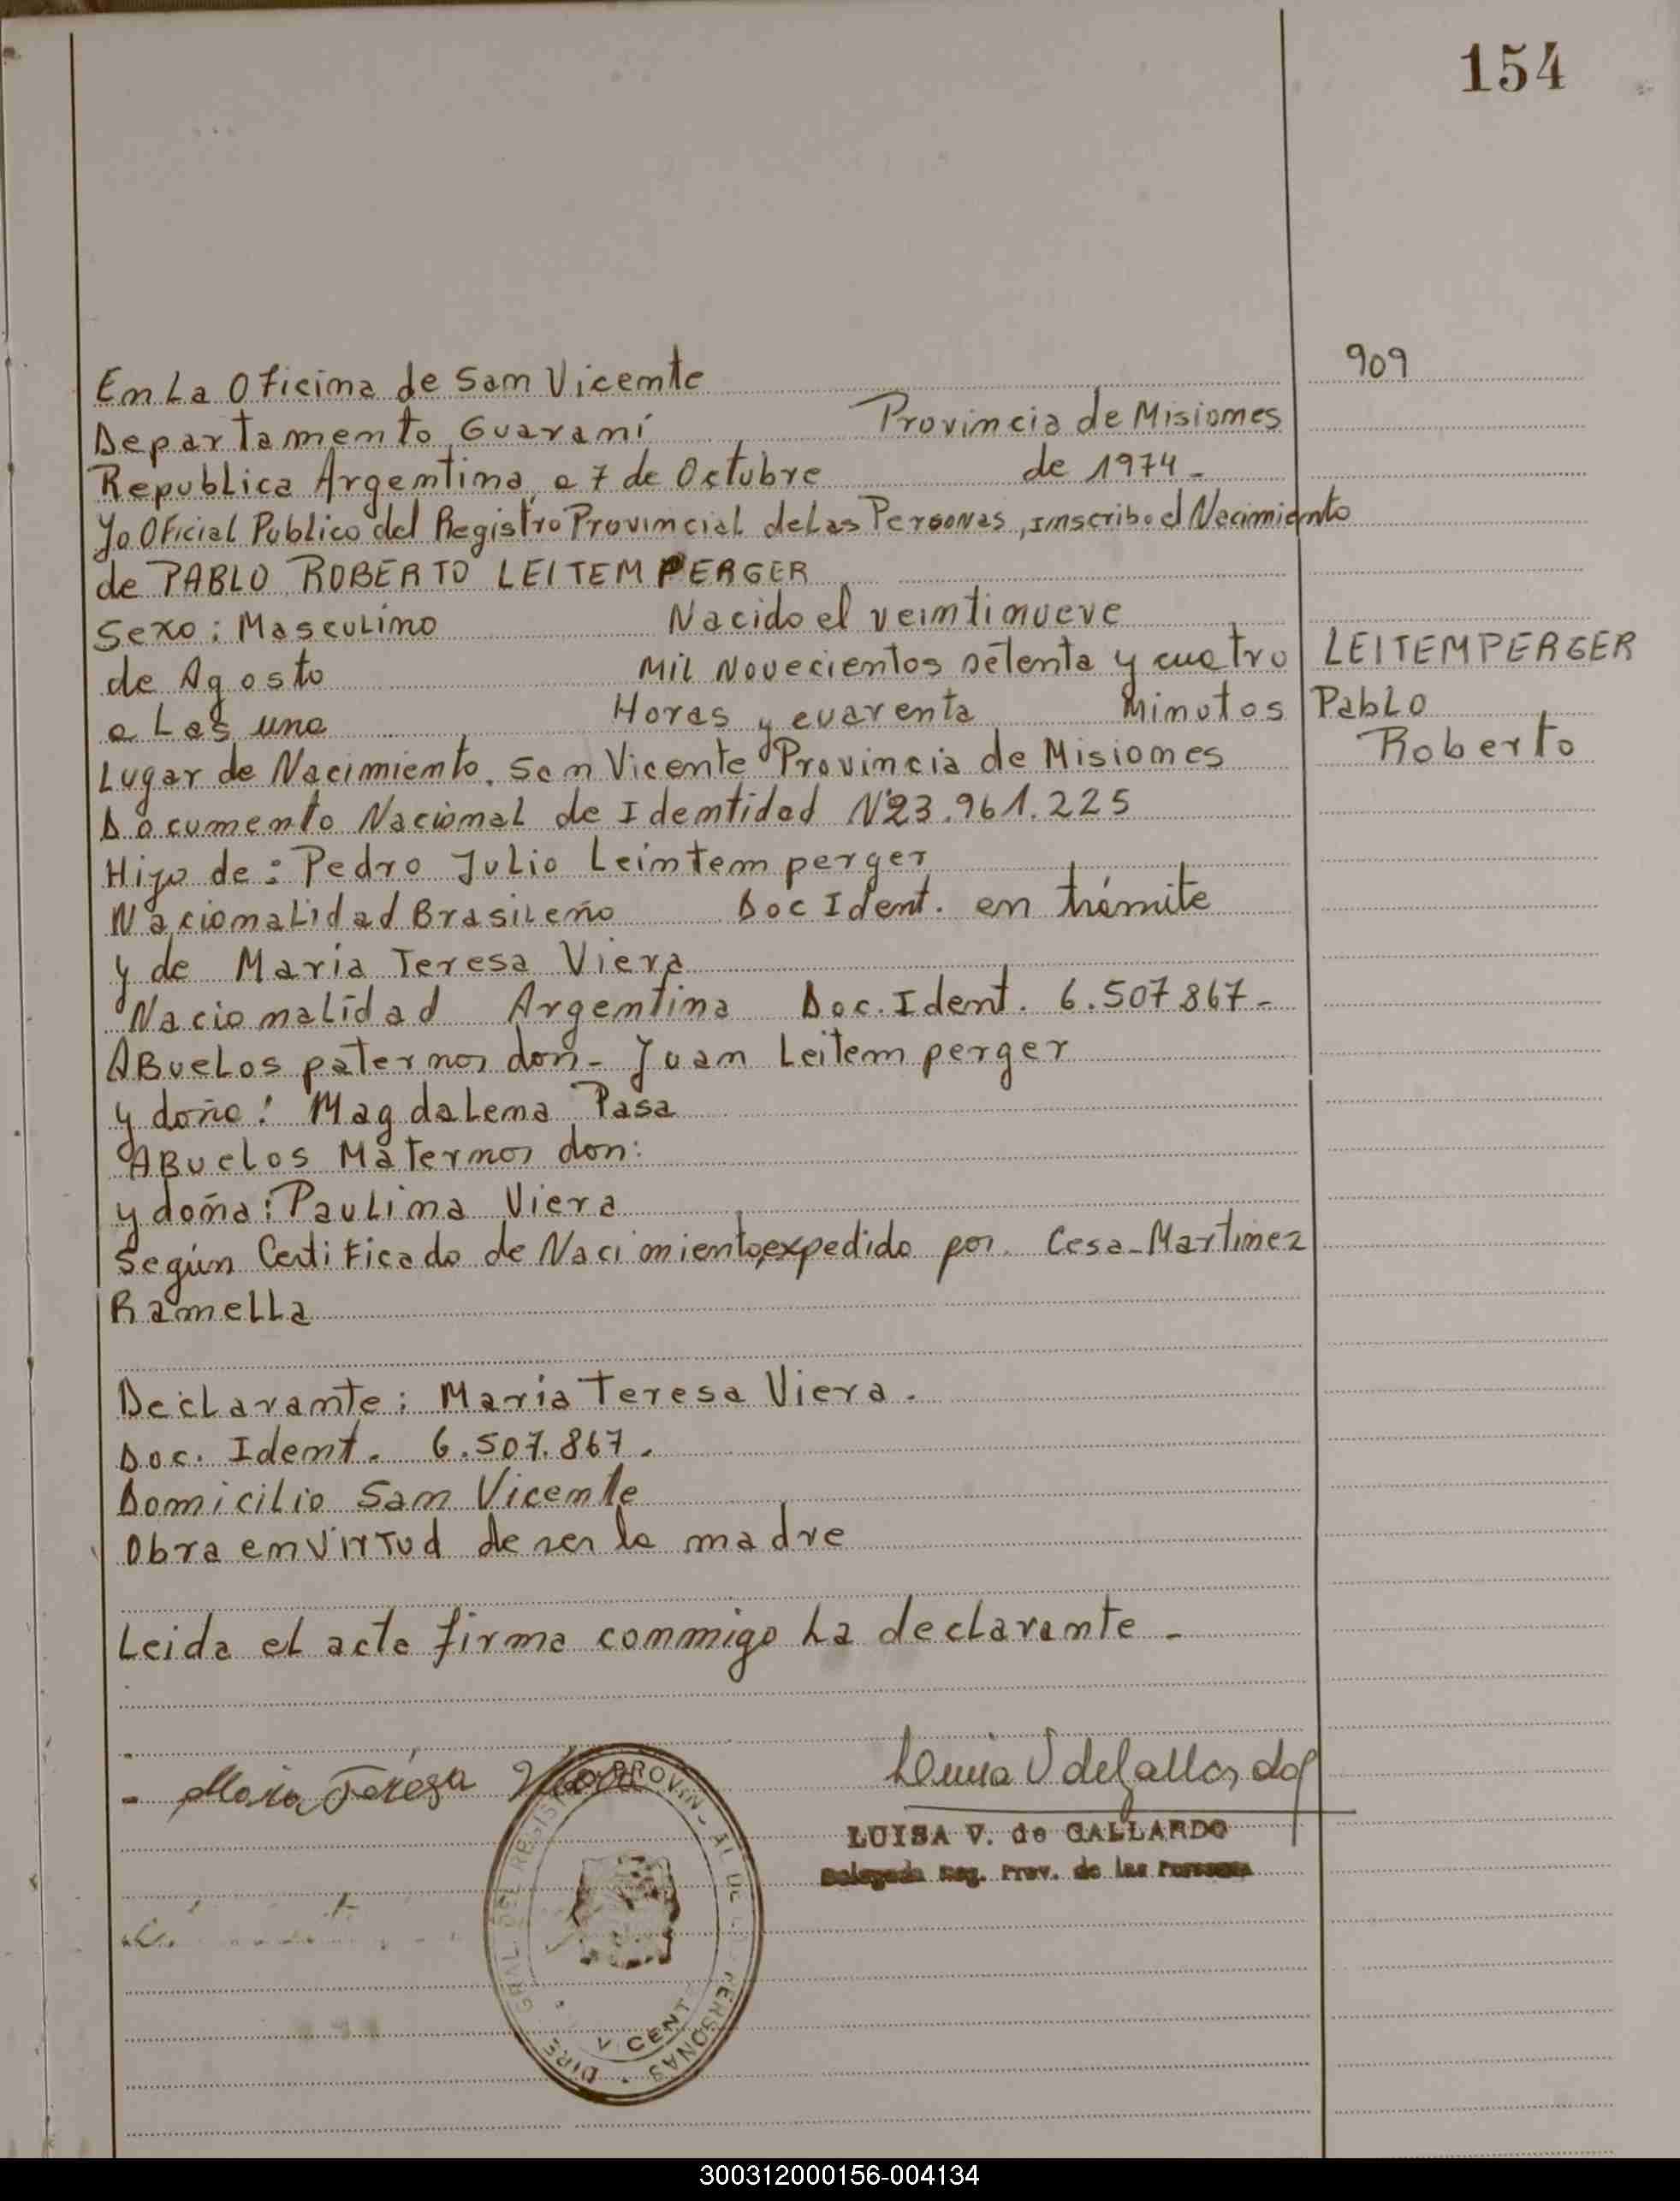 154
En La Oficina de San Vicente
909
Departamento Guaraní Provincia de Misiones
Republica Argentina, a 7 de Octubre de 1974-
Yo Oficial Publico del Registro Provincial de Las Personas, inscribo el Nacimiento
de PABLO ROBERTO LEITEMPERGER
Sexo: Masculino Nacido el veintinueve
de Agosto Mil Novecientos setenta y cuatro
LEITEMPERGER
a Las una Horas y cuarenta Minutos
Pablo
Roberto
Lugar de Nacimiento. San Vicente Provincia de Misiones
Documento Nacional de Identidad Nº23.961.225
Hijo de: Pedro Julio Leintemperger
Nacionalidad Brasileño Doc Ident. en trámite
y de Maria Teresa Viera
Nacionalidad Argentina Doc. Ident. 6.507867-
ABueLos paternos don- Juan Leitemperger
y doña: Magdalena Pasa
ABuelos Maternos don:
y doña: Paulina Viera
Según Certificado de Nacimiento, expedido por Cesa-Martinez
Ramella
Declarante: Maria Teresa Viera.
Doc. Ident. 6.507.867.
Domicilio San Vicente
Obra en Virtud de ser la madre
Leida el acta firma conmigo La declarante-
Maria Teresa Viera
LUISA V. de GALLARDO
Delegada Reg. Prov. de las Personas
PERSONAS
300312000156-004134